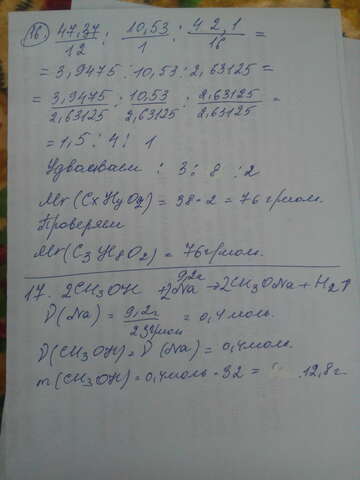 16. 47,37/12 : 10,53/1 : 42,1/16 =
= 3,9475 : 10,53 : 2,63125 =
= 3,9475/2,63125 : 10,53/2,63125 : 2,63125/2,63125 =
= 1,5 : 4 : 1
Удваиваем : 3 : 8 : 2
Mr(CxHyOz) = 38·2 = 76 г/моль.
Проверяем
Mr(C3H8O2) = 76 г/моль.
17. 2CH3OH + 2Na → 2CH3ONa + H2↑
9,2г
ν(Na) = 9,2г/23г/моль = 0,4 моль.
ν(CH3OH) = ν(Na) = 0,4 моль.
m(CH3OH) = 0,4 моль · 32 = 12,8 г.